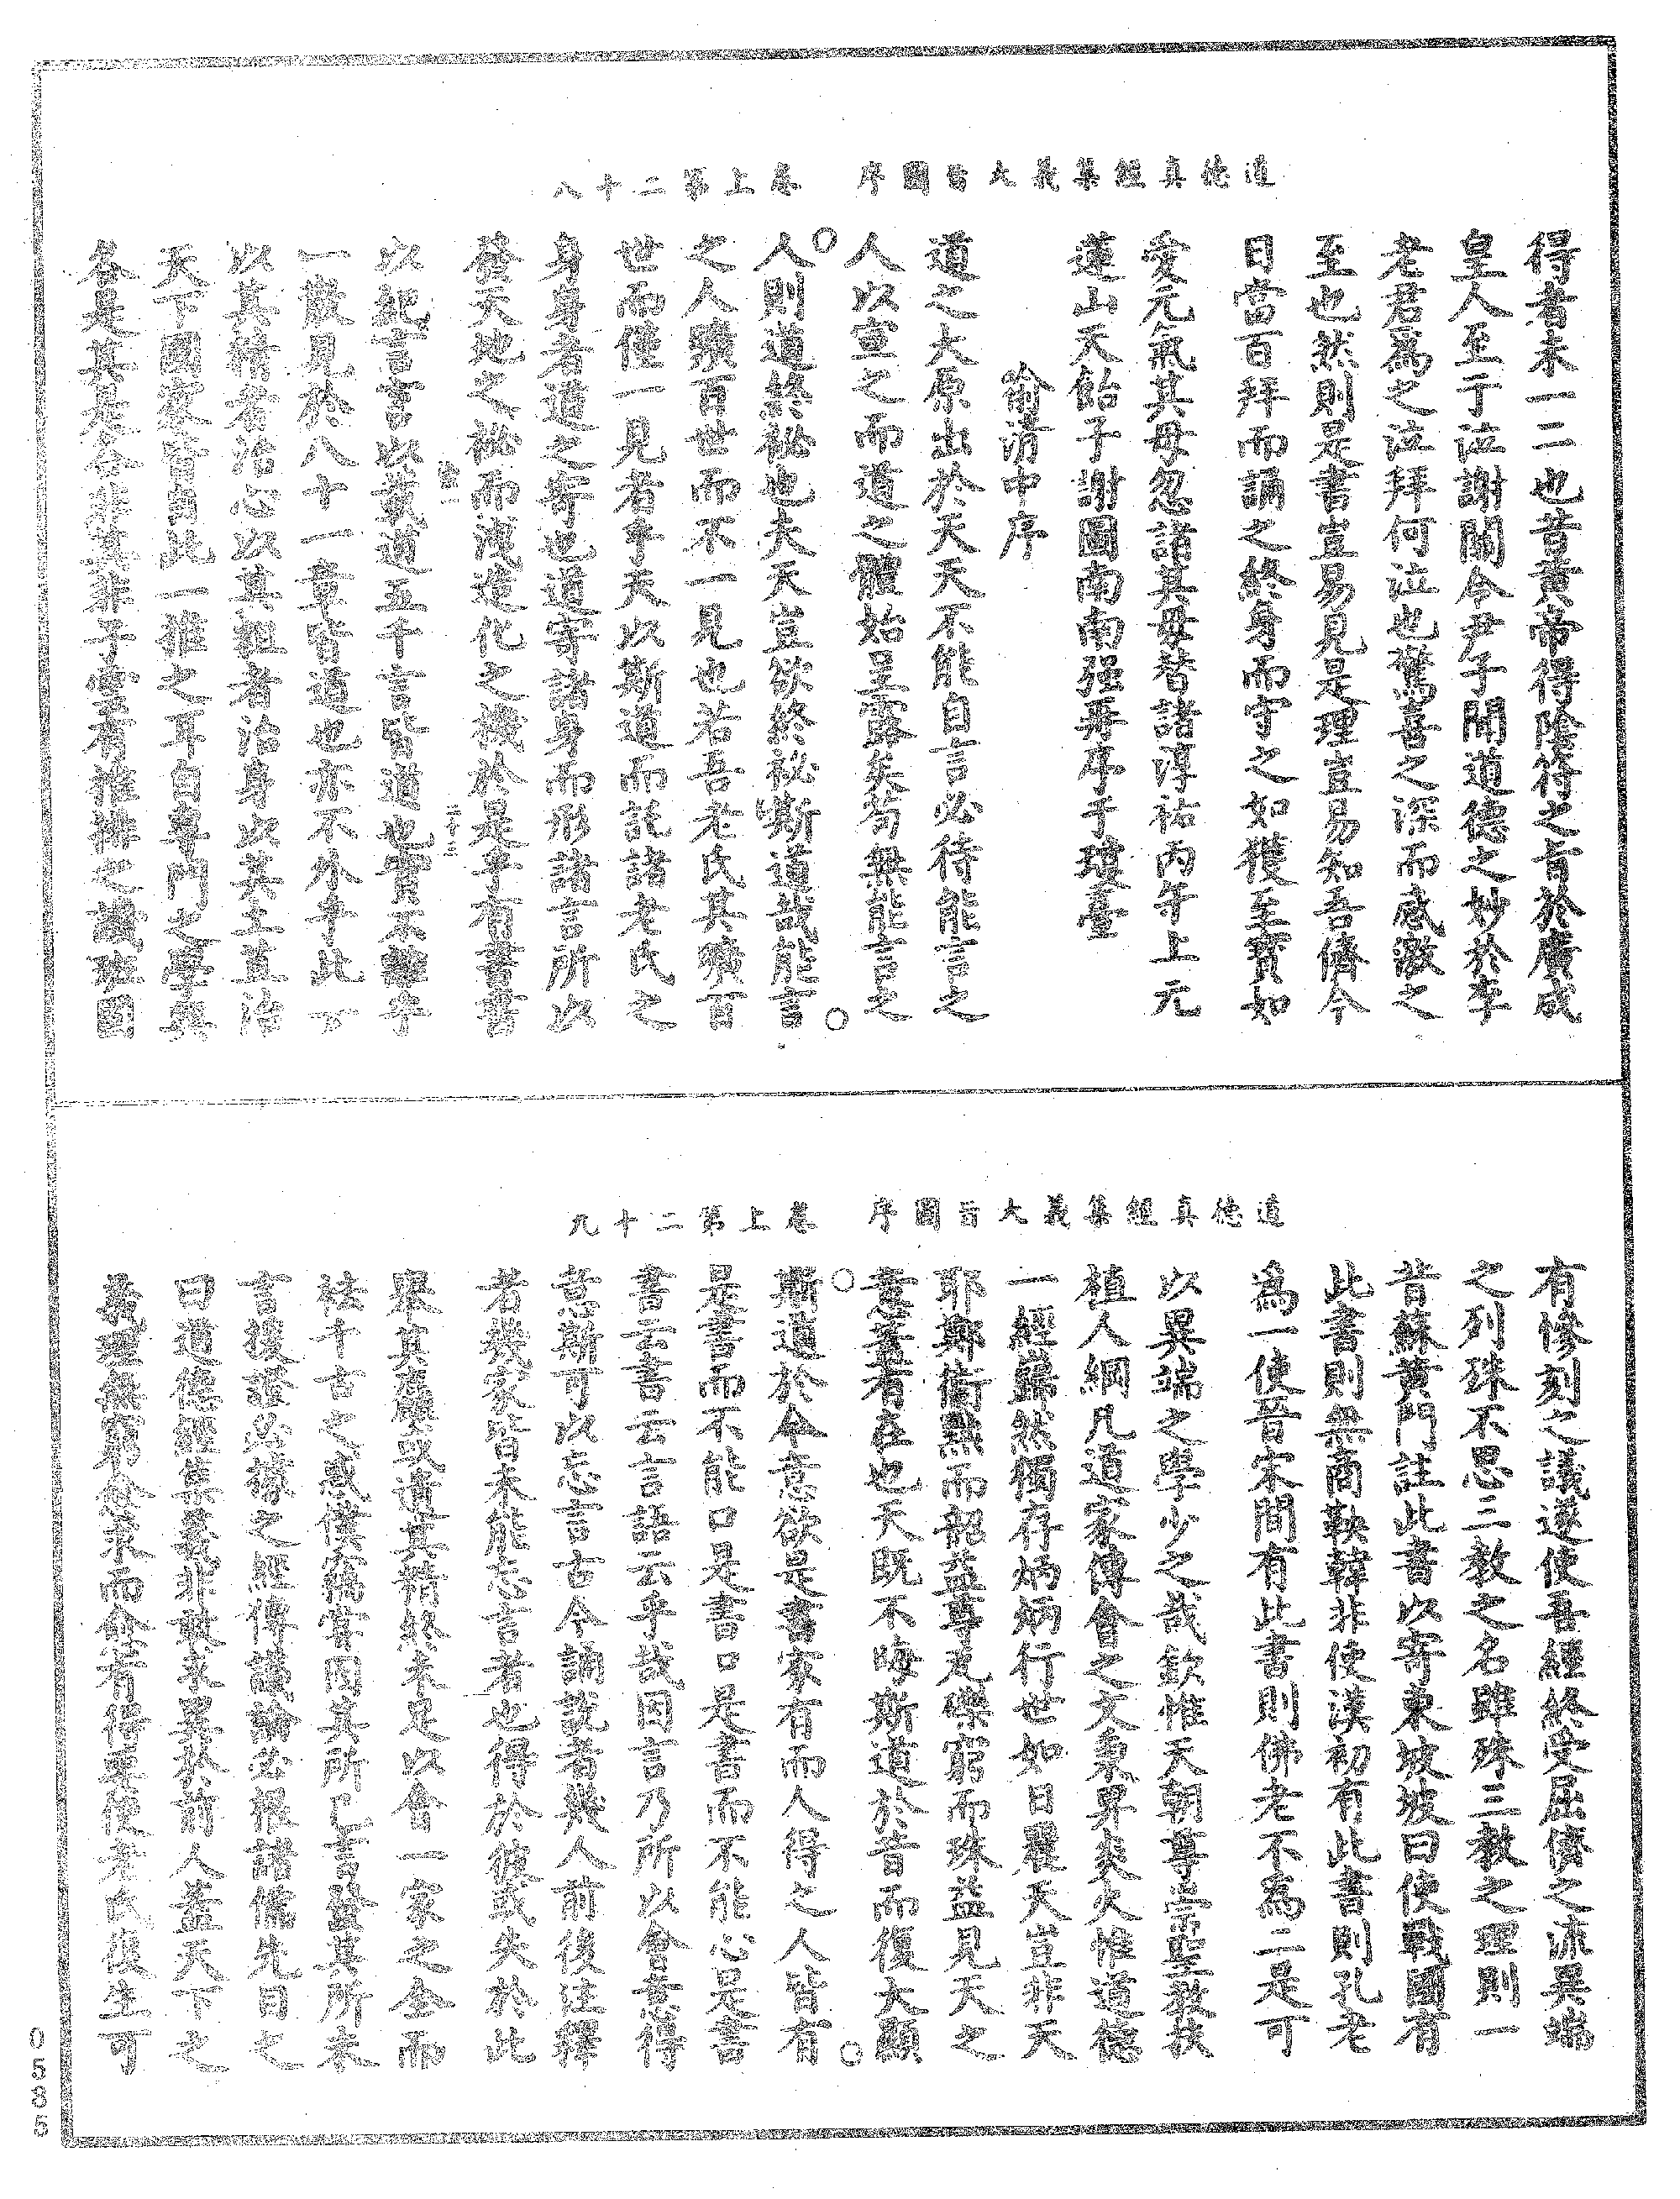 道德真經集義大旨圖序 卷上第二十八
得者未一二也昔黃帝得陰符之旨於廣成
皇人至于泣謝關令尹子聞道德之妙於李
老君爲之泣拜何泣也驚喜之深而感激之
至也然則是書豈易見是理豈易知吾儕今
日當百拜而誦之終身而守之如獲至寶如
愛元氣其毋忽諸其毋昔諸淳祐丙午上元
蓮山天飴子謝圖南南强再序于瓊臺
喻清中序
道之大原出於天天不能自言必待能言之
人以宣之而道之體始呈露矣苟無能言之
人則道終祕也夫天豈欲終祕斯道哉能言
之人曠百世而不一見也若吾老氏其曠百
世而僅一見者乎天以斯道而託諸老氏之
身身者道之寄也道寄諸身而形諸言所以
發天地之祕而洩造化之機於是乎有書書
以紀言言以載道五千言皆道也實不離乎
一散見於八十一章皆道也亦不外乎此一
以其精者治心以其粗者治身以其土苴治
天下國家皆自此一推之耳自專門之學興
各是其是各非其非子雲有槌提之譏班固
道德真經集義大旨圖序 卷上第二十九
有慘刻之議遂使吾經終受屈儕之流異端
之列殊不思三教之名雖殊三教之理則一
昔蘇黃門註此書以寄東坡坡曰使戰國有
此書則無商鞅韓非使漢初有此書則孔老
爲一使晉宋間有此書則佛老不爲二是可
以異端之學少之哉欽惟天朝尊崇聖教扶
植人綱凡道家傳會之文秉畀炎火惟道德
一經巋然獨存炳炳行世如日麗天豈非天
耶鄭衛黜而韶益尊瓦礫窮而珠益見天之
意蓋有在也天既不晦斯道於昔而復大顯
斯道於今意欲是書家有而人得之人皆有
是書而不能口是書口是書而不能心是書
書云書云言語云乎哉因言乃所以會意得
意斯可以忘言古今誦說者幾人前後注釋
者幾家皆未能忘言者也得於彼或失於此
舉其麤或遺其精終未足以會一家之全而
祛千古之惑僕竊嘗因其所已言發其所未
言援證必據之經傳議論必根諸儒先目之
曰道德經集義非敢求異於前人蓋天下之
義理無窮僉求而僉有得要使老氏復生可
0585